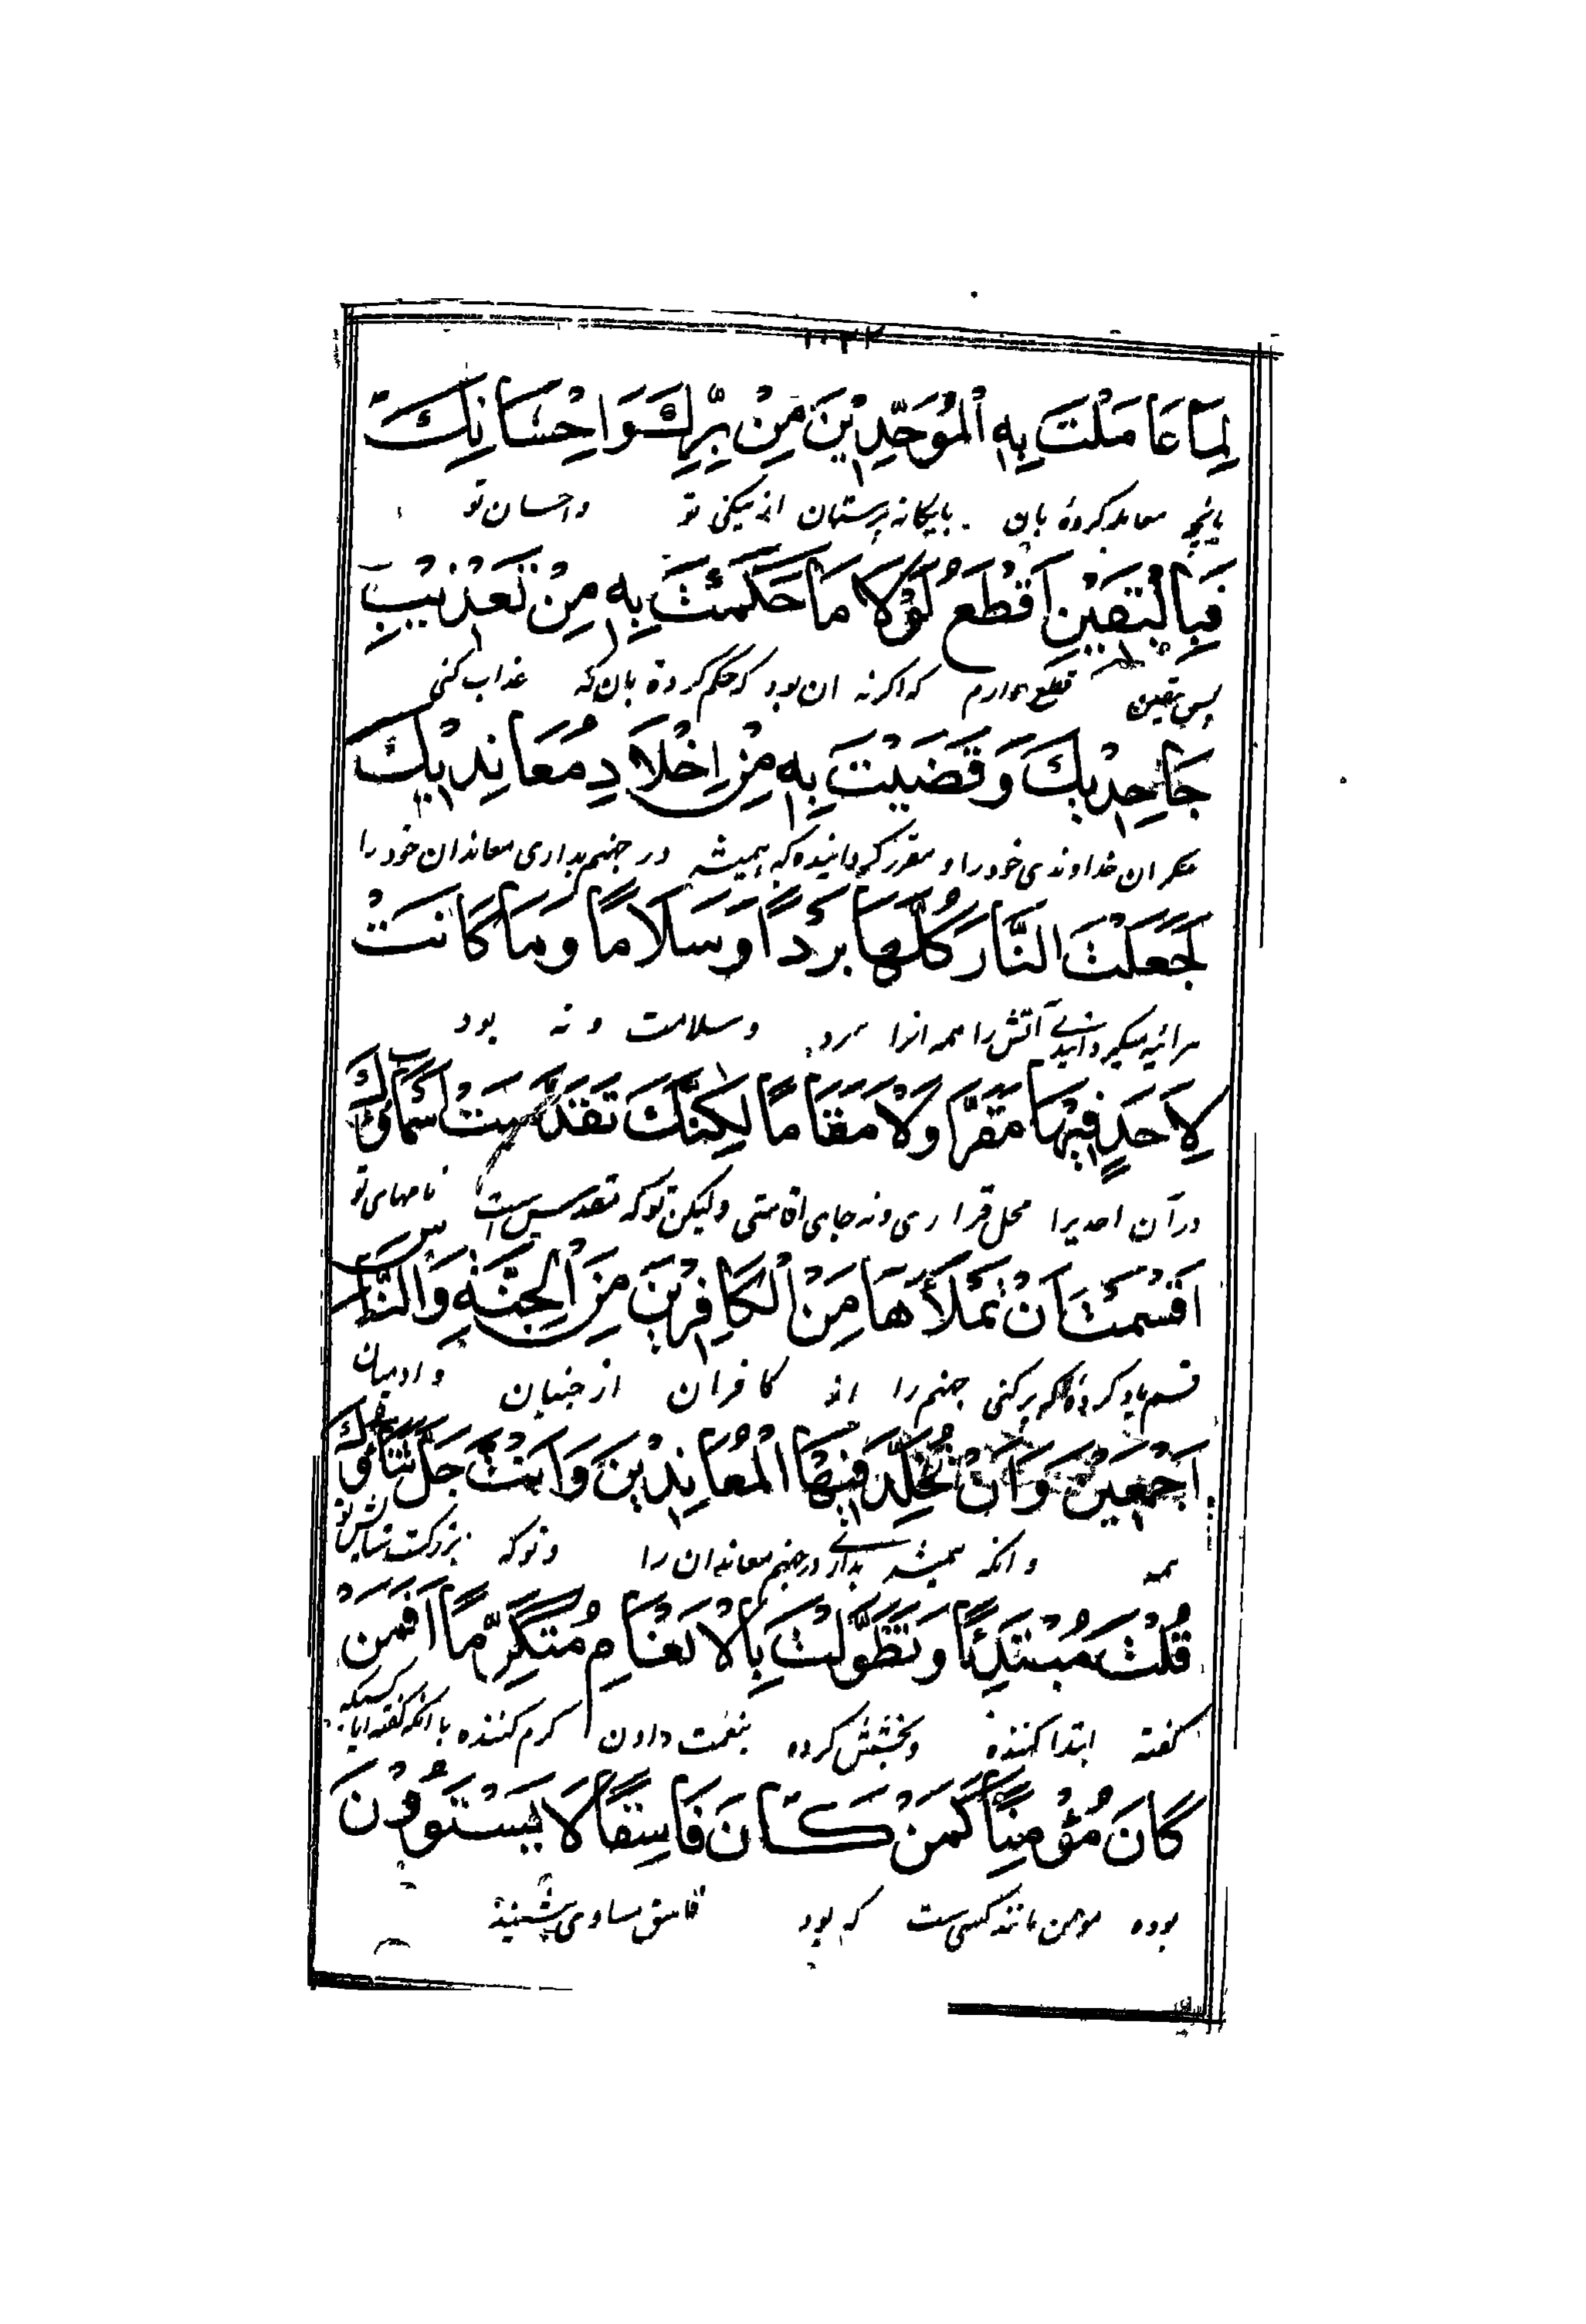 ١٠٣٢
لِمَا عَامَلْتَ بِهِ الْمُوَحِّدِيْنَ مِنْ بِرِّكَ وَاِحْسَانِكَ
بانچه معامله کردۀ بان بایگانه پرستان از نیکی تو واحسان تو
فَبِالْيَقِيْنِ اَقْطَعُ لَوْلَا مَا حَكَمْتَ بِهِ مِنْ تَعْذِيْبِ
پس بیقین قطع دارم که اگر نه ان بود که حکم کردۀ بان که عذاب کنی
جَاحِدِيْكَ وَقَضَيْتَ بِهِ مِنْ اِخْلَادِ مُعَانِدِيْكَ
منکران خداوندی خود را و مقرر گردانیده که همیشه در جهنم بداری معاندان خود را
لَجَعَلْتَ النَّارَ كُلَّهَا بَرْدًا وَسَلَامًا وَمَا كَانَتْ
هرآئینه میگردانیدی آتش را همه انرا سرد وسلامت و نه بود
لِاَحَدٍ فِيْهَا مَقَرًّا وَلَا مَقَامًا لٰكِنَّكَ تَقَدَّسَتْ اَسْمَاؤُكَ
در آن احدیرا محل قراری ونه جای اقامتی ولیکن توکه مقدس است نامهای تو
اَقْسَمْتَ اَنْ تَمْلَأَهَا مِنَ الْكَافِرِيْنَ مِنَ الْجِنَّةِ وَالنَّاسِ
قسم یاد کردۀ که پر کنی جهنم را از کافران از جنیان وادمیان
اَجْمَعِيْنَ وَاَنْ تُخَلِّدَ فِيْهَا الْمُعَانِدِيْنَ وَاَنْتَ جَلَّ ثَنَاؤُكَ
همه وانکه همیشه بداری در جهنم معاندان را وتوکه بزرگست ثنایش تو
قُلْتَ مُبْتَدِئًا وَتَطَوَّلْتَ بِالْاِنْعَامِ مُتَكَرِّمًا اَفَمَنْ
گفته ابتدا کننده وبخشش کرده بنعمت دادن کرم کننده بانکه گفته ایا کسیکه
كَانَ مُؤْمِنًا كَمَنْ كَانَ فَاسِقًا لَا يَسْتَوُوْنَ
بوده مومن مانند کسی ست که بود فاسق مساوی نیستند